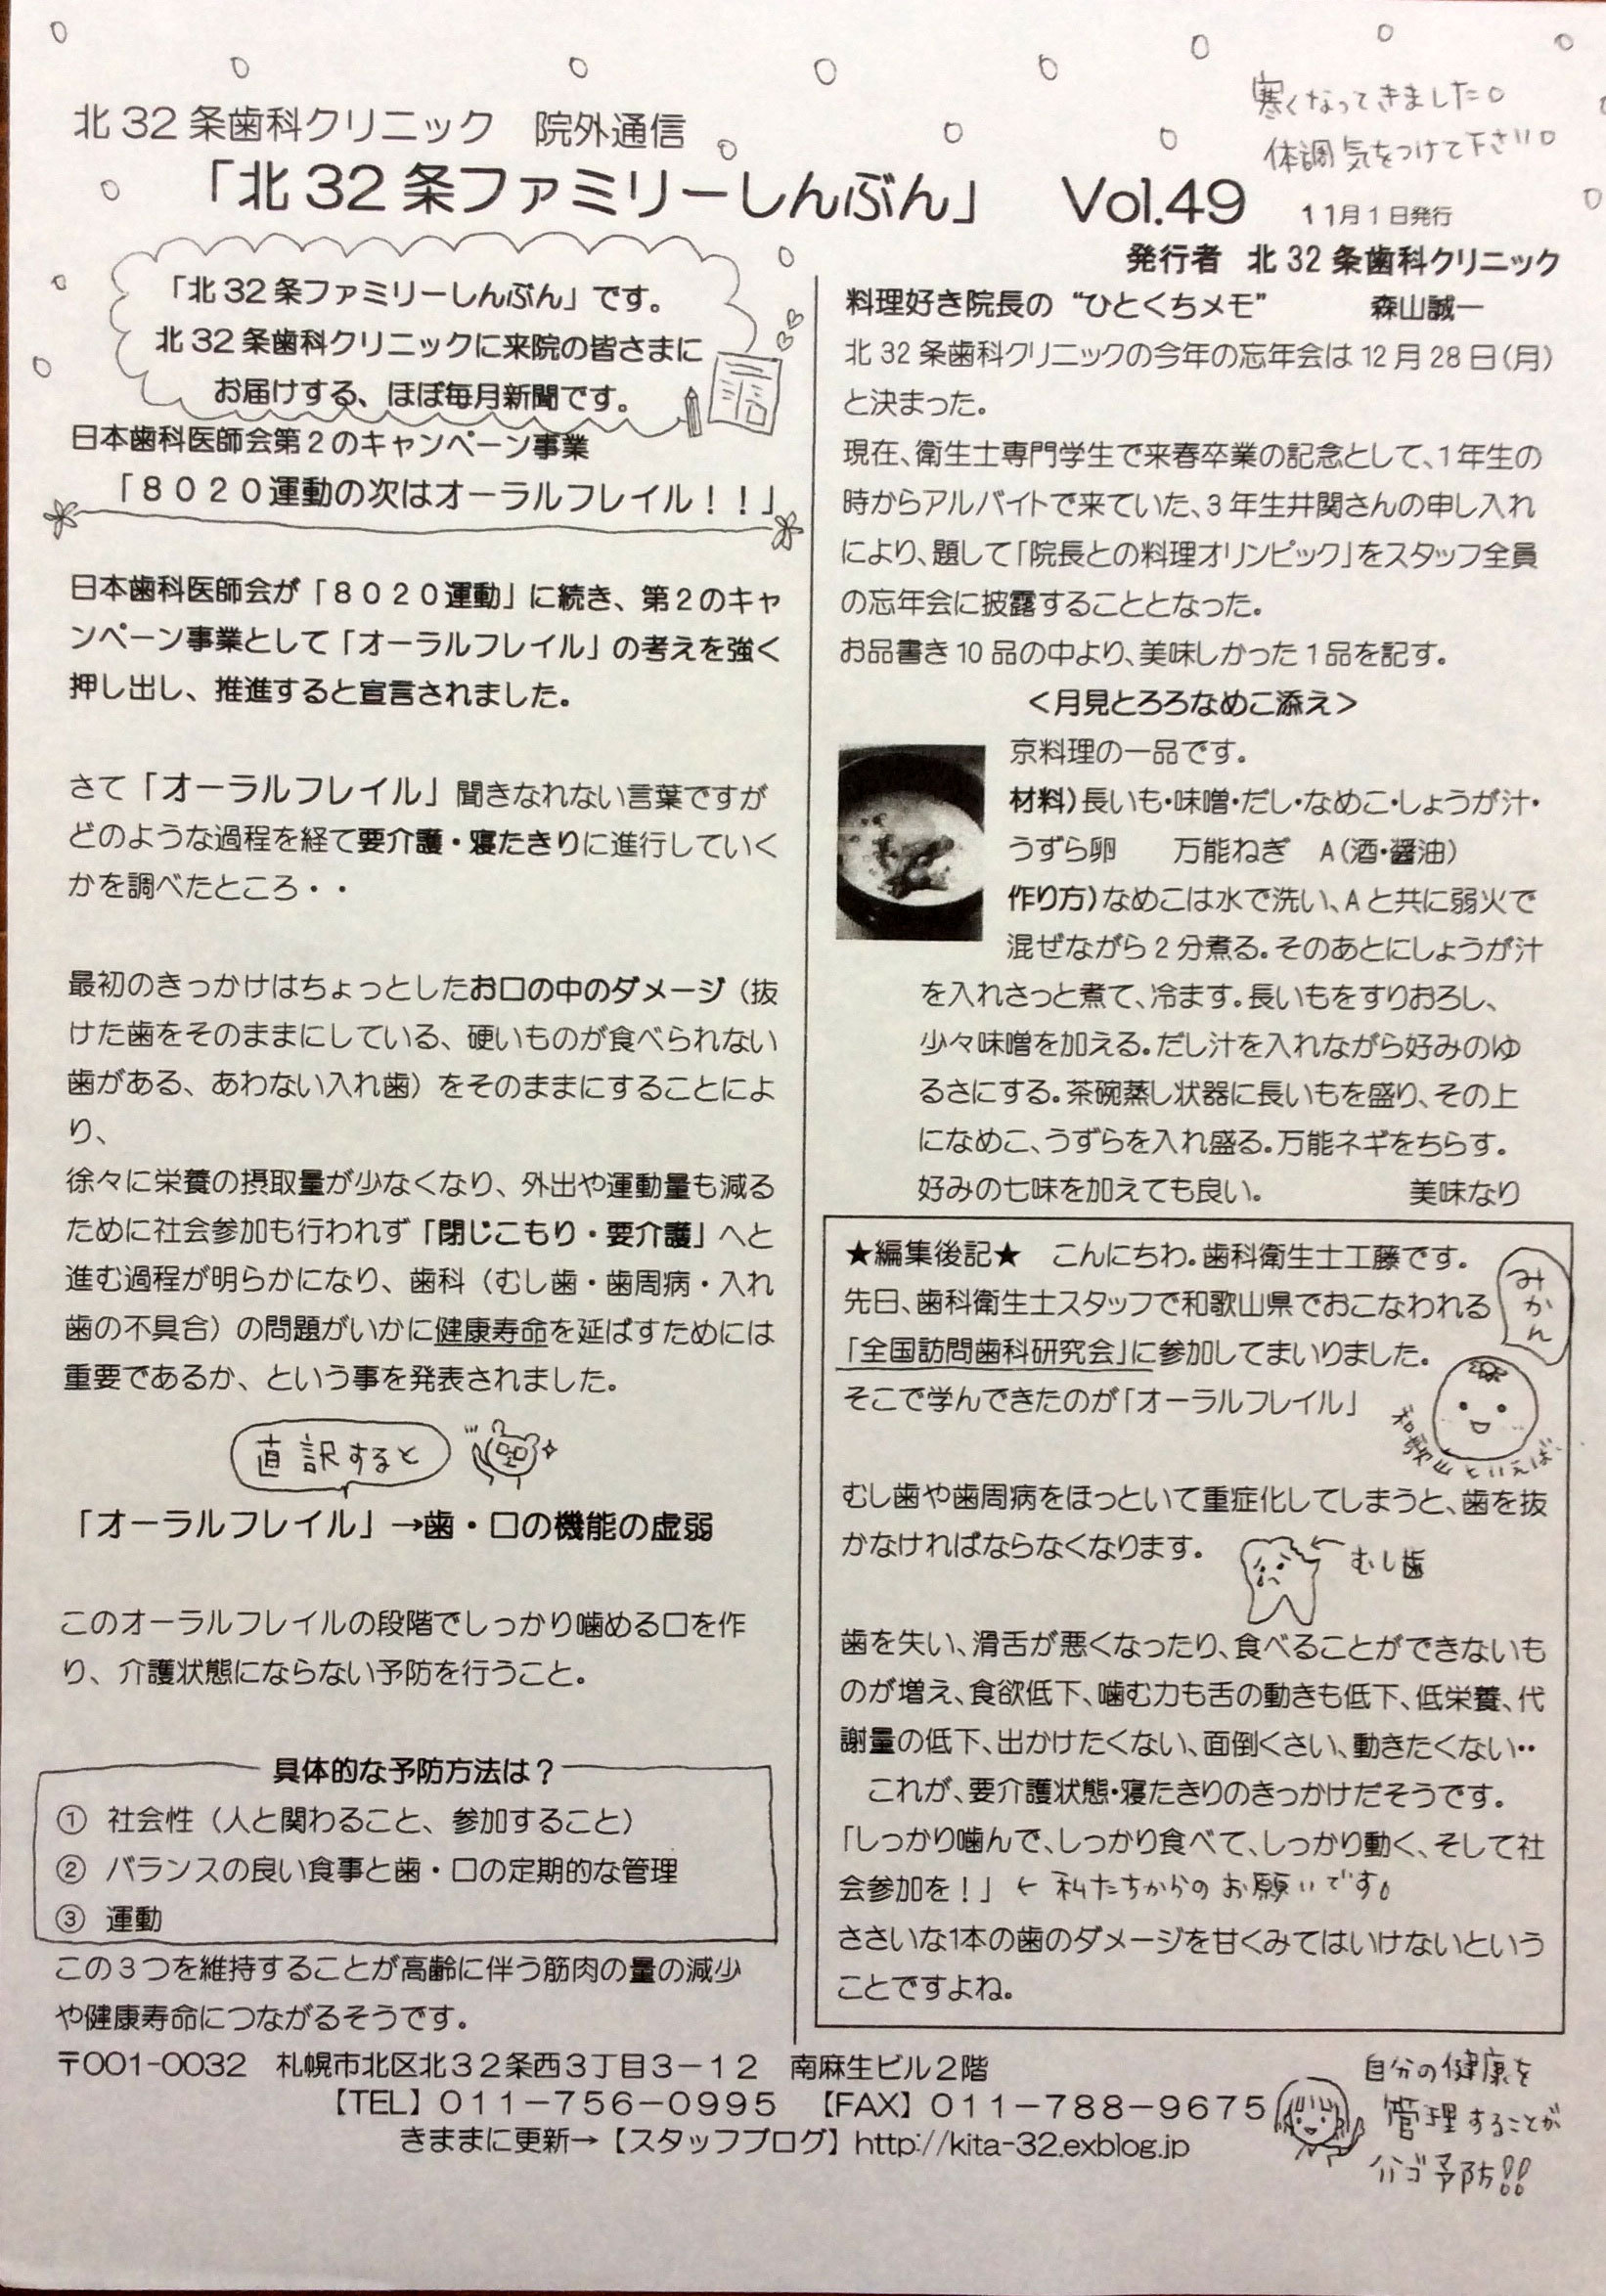 寒くなってきました。
体調気をつけて下さい。
北32条歯科クリニック 院外通信
「北32条ファミリーしんぶん」 Vol.49 11月1日発行
発行者 北32条歯科クリニック
「北32条ファミリーしんぶん」です。
北32条歯科クリニックに来院の皆さまに
お届けする、ほぼ毎月新聞です。
日本歯科医師会第2のキャンペーン事業
「8020運動の次はオーラルフレイル!!」
日本歯科医師会が「8020運動」に続き、第2のキャ
ンペーン事業として「オーラルフレイル」の考えを強く
押し出し、推進すると宣言されました。
さて「オーラルフレイル」聞きなれない言葉ですが
どのような過程を経て要介護・寝たきりに進行していく
かを調べたところ・・
最初のきっかけはちょっとしたお口の中のダメージ(抜
けた歯をそのままにしている、硬いものが食べられない
歯がある、あわない入れ歯)をそのままにすることによ
り、
徐々に栄養の摂取量が少なくなり、外出や運動量も減る
ために社会参加も行われず「閉じこもり・要介護」へと
進む過程が明らかになり、歯科(むし歯・歯周病・入れ
歯の不具合)の問題がいかに健康寿命を延ばすためには
重要であるか、という事を発表されました。
直訳すると
「オーラルフレイル」→歯・口の機能の虚弱
このオーラルフレイルの段階でしっかり噛める口を作
り、介護状態にならない予防を行うこと。
具体的な予防方法は?
① 社会性(人と関わること、参加すること)
② バランスの良い食事と歯・口の定期的な管理
③ 運動
この3つを維持することが高齢に伴う筋肉の量の減少
や健康寿命につながるそうです。
料理好き院長の“ひとくちメモ” 森山誠一
北32条歯科クリニックの今年の忘年会は12月28日(月)
と決まった。
現在、衛生士専門学生で来春卒業の記念として、1年生の
時からアルバイトで来ていた、3年生井関さんの申し入れ
により、題して「院長との料理オリンピック」をスタッフ全員
の忘年会に披露することとなった。
お品書き10品の中より、美味しかった1品を記す。
<月見とろろなめこ添え>
京料理の一品です。
材料)長いも・味噌・だし・なめこ・しょうが汁・
うずら卵 万能ねぎ A(酒・醤油)
作り方)なめこは水で洗い、Aと共に弱火で
混ぜながら2分煮る。そのあとにしょうが汁
を入れさっと煮て、冷ます。長いもをすりおろし、
少々味噌を加える。だし汁を入れながら好みのゆ
るさにする。茶碗蒸し状器に長いもを盛り、その上
になめこ、うずらを入れ盛る。万能ネギをちらす。
好みの七味を加えても良い。 美味なり
★編集後記★ こんにちわ。歯科衛生士工藤です。
先日、歯科衛生士スタッフで和歌山県でおこなわれる
「全国訪問歯科研究会」に参加してまいりました。
そこで学んできたのが「オーラルフレイル」
みかん
和歌山といえば
むし歯や歯周病をほっといて重症化してしまうと、歯を抜
かなければならなくなります。
むし歯
歯を失い、滑舌が悪くなったり、食べることができないも
のが増え、食欲低下、噛む力も舌の動きも低下、低栄養、代
謝量の低下、出かけたくない、面倒くさい、動きたくない‥
これが、要介護状態・寝たきりのきっかけだそうです。
「しっかり噛んで、しっかり食べて、しっかり動く、そして社
会参加を!」 ← 私たちからのお願いです。
ささいな1本の歯のダメージを甘くみてはいけないという
ことですよね。
〒001-0032 札幌市北区北32条西3丁目3-12 南麻生ビル2階
【TEL】011-756-0995 【FAX】011-788-9675
きままに更新→【スタッフブログ】http://kita-32.exblog.jp
自分の健康を
管理することが
介ゴ予防!!